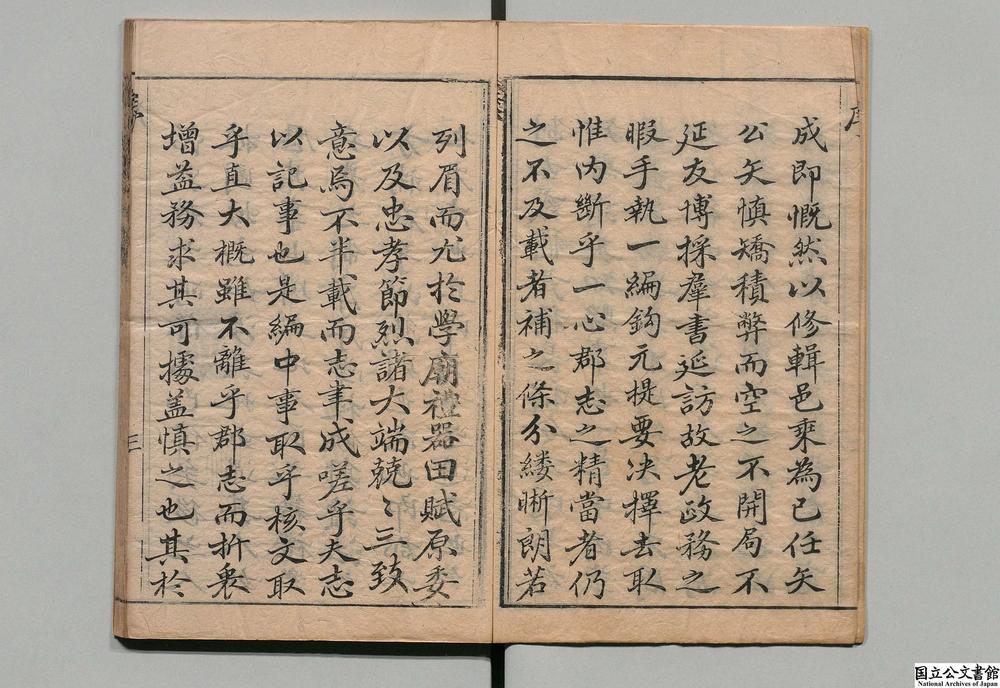 序
成即慨然以修輯邑乘為已任矢
公矢慎矯積弊而空之不開局不
延友博採羣書延訪故老政務之
暇手執一編鈎元提要决擇去取
惟内斷乎一心郡志之精當者仍
之不及載者補之條分縷晰朗若
列眉而尤於學廟禮器田賦原委
以及忠孝節烈諸大端兢〻三致
意焉不半載而志聿成嗟乎夫志
以記事也是編中事取乎核文取
乎直大概雖不離乎郡志而折衷
增益務求其可據盖慎之也其於
序
三
国立公文書館
National Archives of Japan